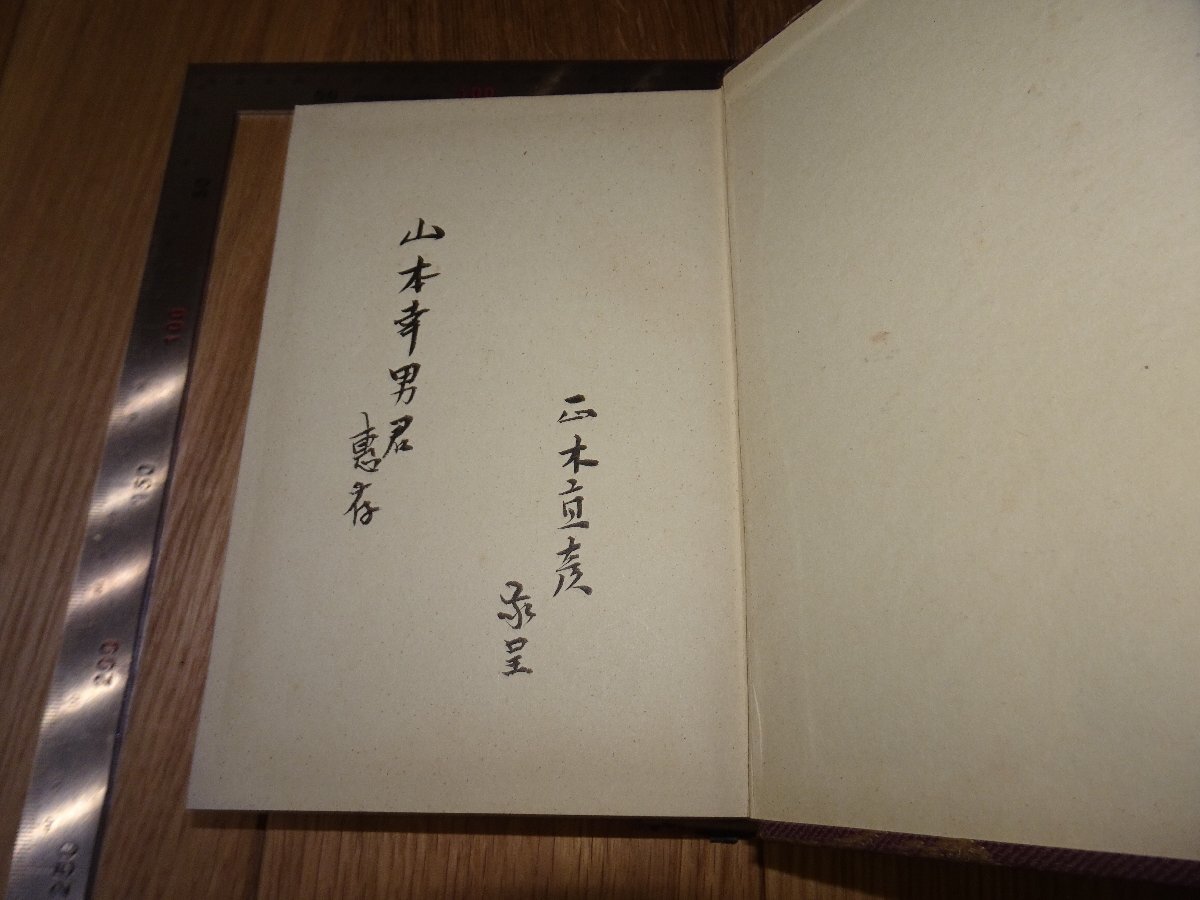 正木直彦
敬呈
山本幸男君
惠存
100
100
150
200
250